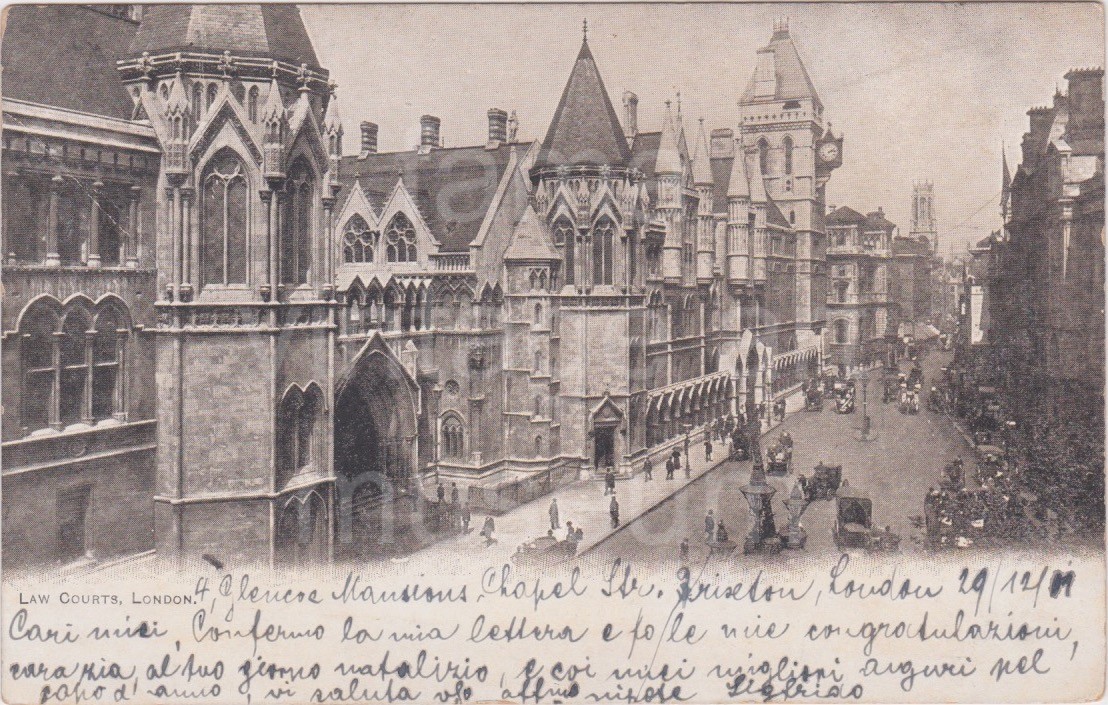 LAW COURTS, LONDON.
4, Glencoe Mansions, Chapel Str. Brixton, London 29/12/
Cari miei, Confermo la mia lettera e fo le mie congratulazioni,
cara zia, al tuo giorno natalizio, e coi miei migliori auguri pel
capo d'anno, vi saluta vo. affmo nipote